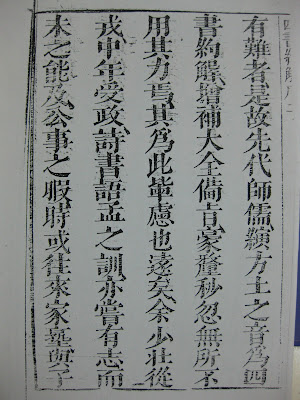 有難者是故先代師儒類方土之音為四
書約解增補大全備旨豪釐秒忽無所不
用其力焉其為此輩慮也遠矣余少壯從
戎中年受政詩書語孟之訓亦嘗有志而
未之能及公事之暇時或往來家塾所子